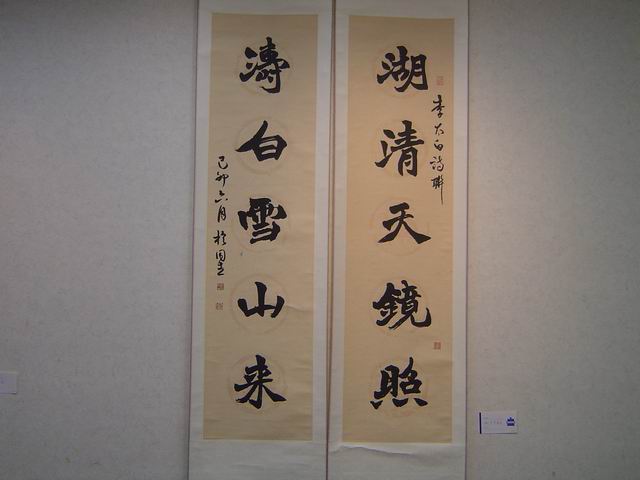 湖清天鏡照
李太白詩聯
濤白雪山来
己卯六月